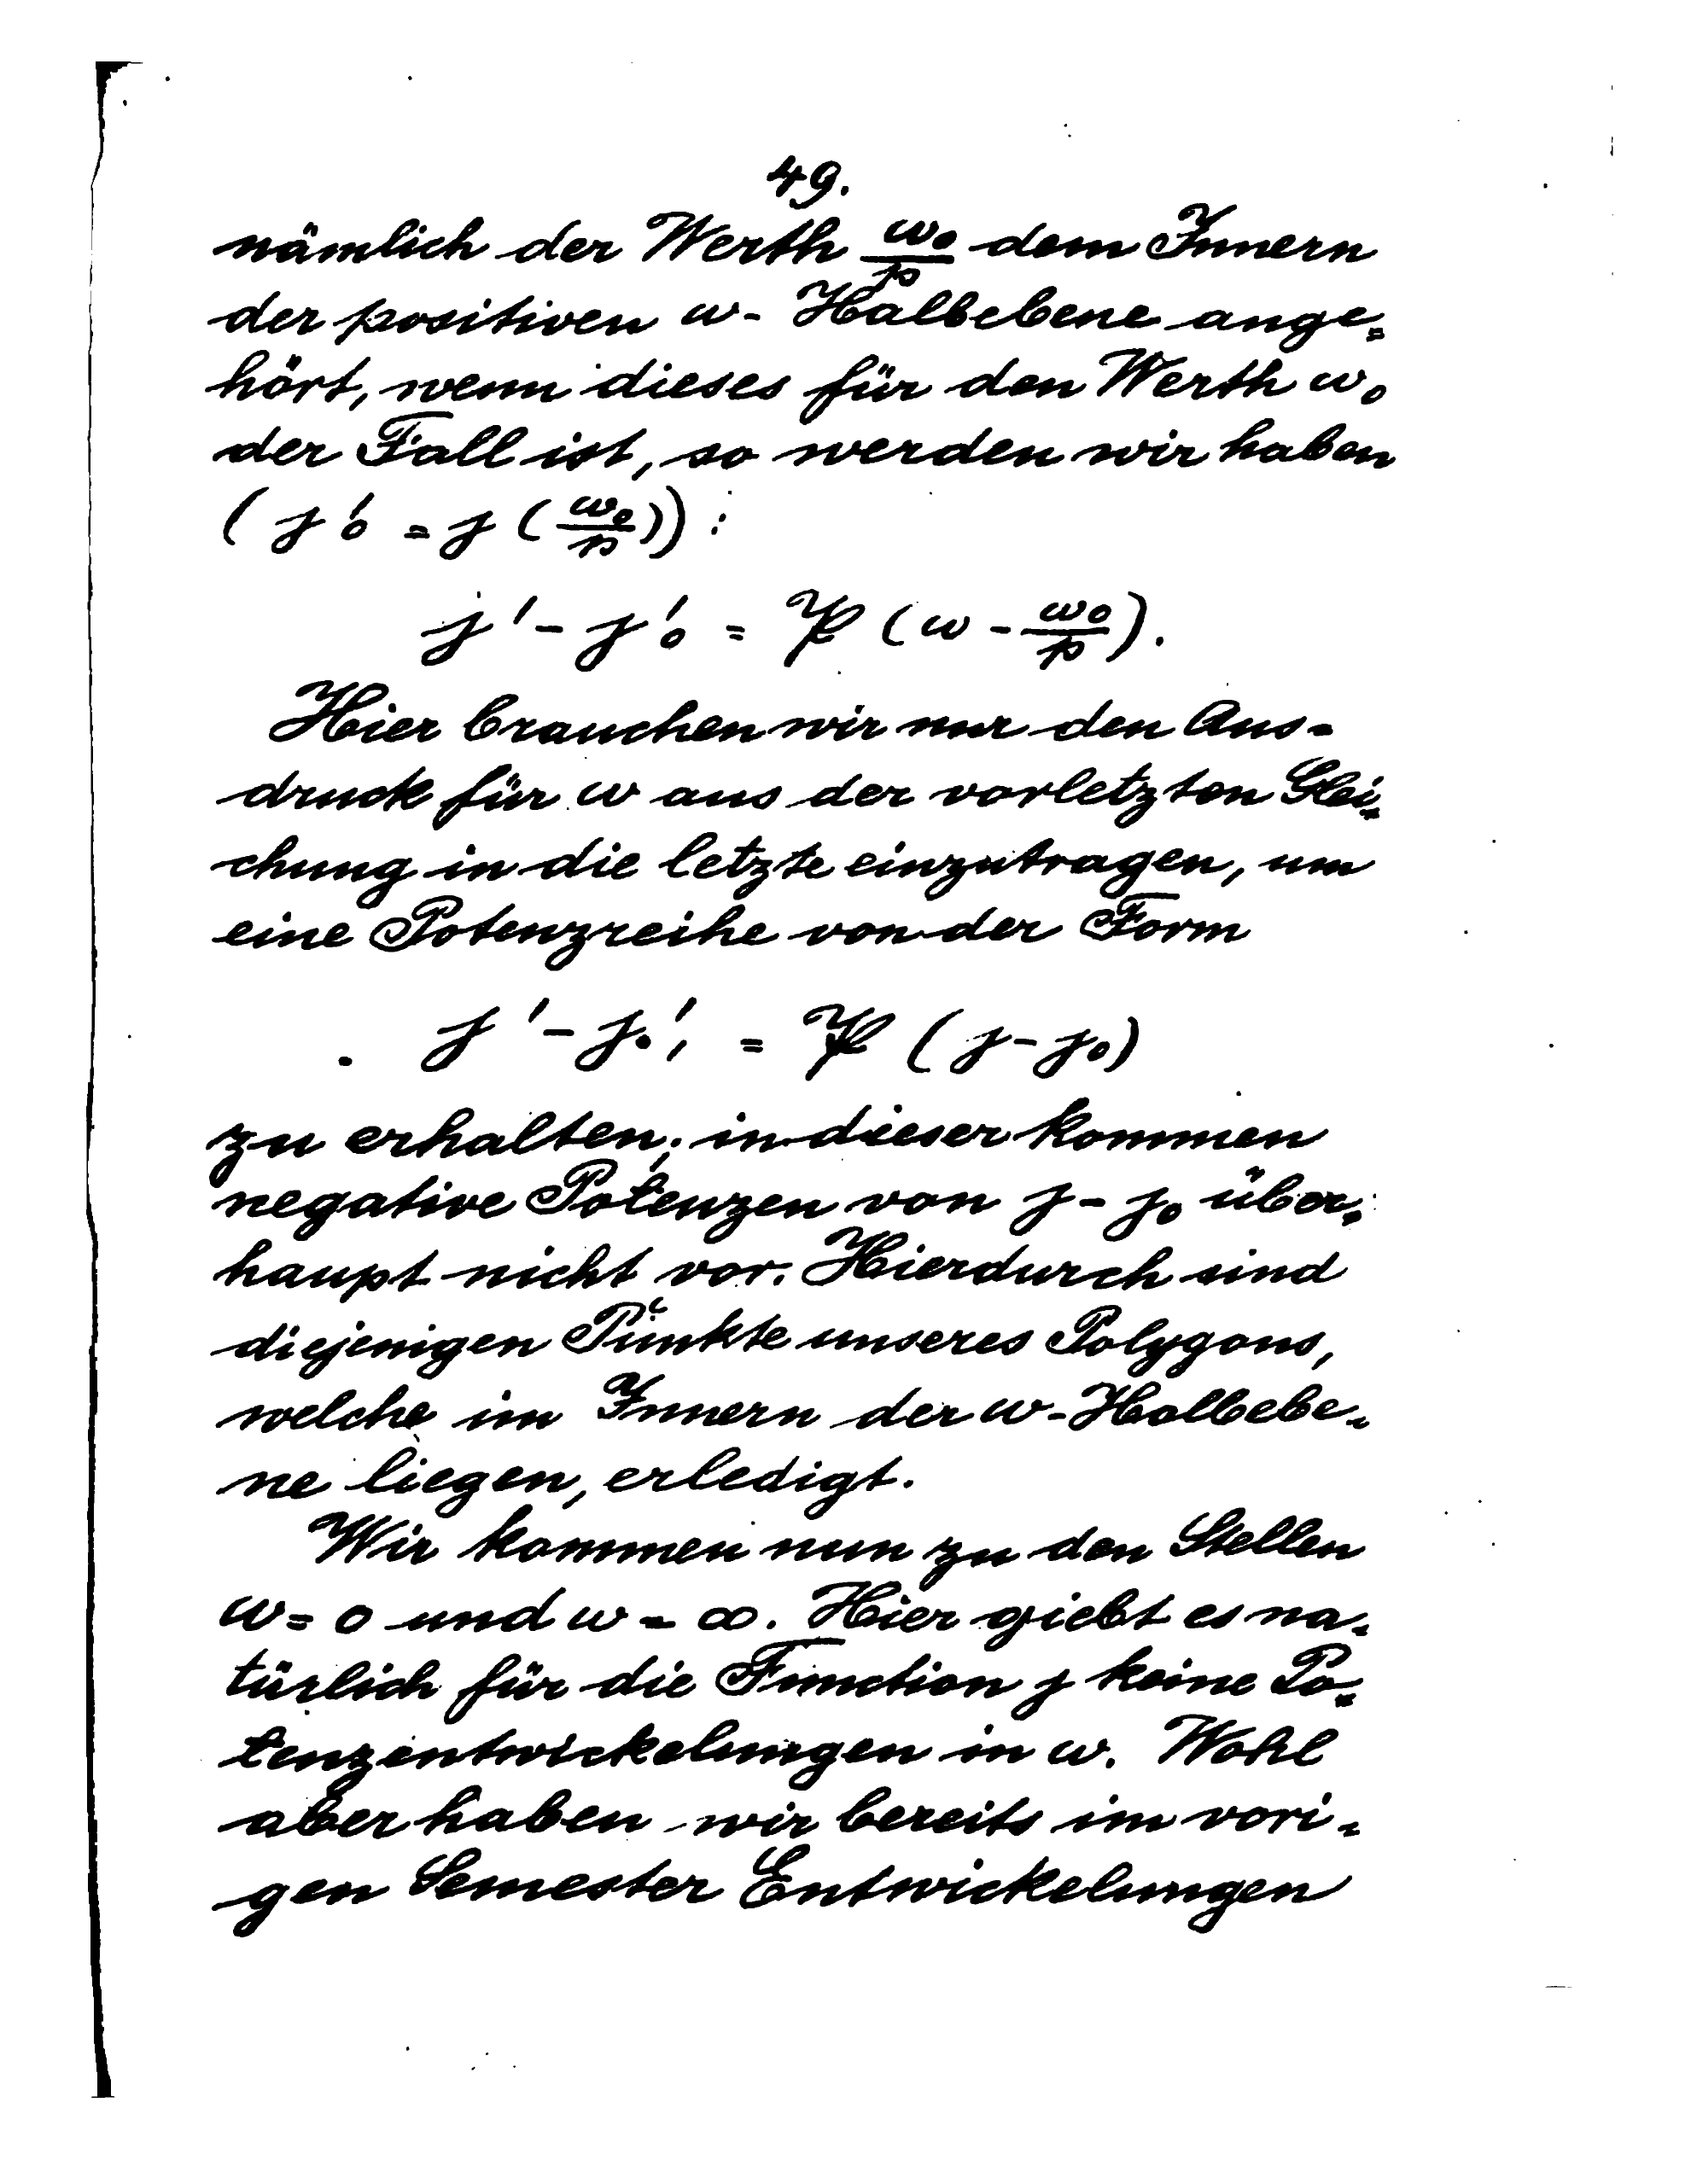 49.
nämlich der Werth ω₀/p dem Innern
der positiven ω-Halbebene ange-
hört, wenn dieses für den Werth ω₀
der Fall ist, so werden wir haben
(j′₀ = j(ω₀/p)):
j′ - j′₀ = 𝔓(ω - ω₀/p).
Hier brauchen wir nur den Aus-
druck für ω aus der vorletzten Glei-
chung in die letzte einzutragen, um
eine Potenzreihe von der Form
j′ - j₀′, = 𝔓(j - j₀)
zu erhalten; in dieser kommen
negative Potenzen von j - j₀ über-
haupt nicht vor. Hierdurch sind
diejenigen Punkte unseres Polygons,
welche im Innern der ω-Halbebe-
ne liegen, erledigt.
Wir kommen nun zu den Stellen
ω = 0 und ω = ∞. Hier giebt es na-
türlich für die Function j keine Po-
tenzentwickelungen in ω. Wohl
aber haben wir bereits im vori-
gen Semester Entwickelungen